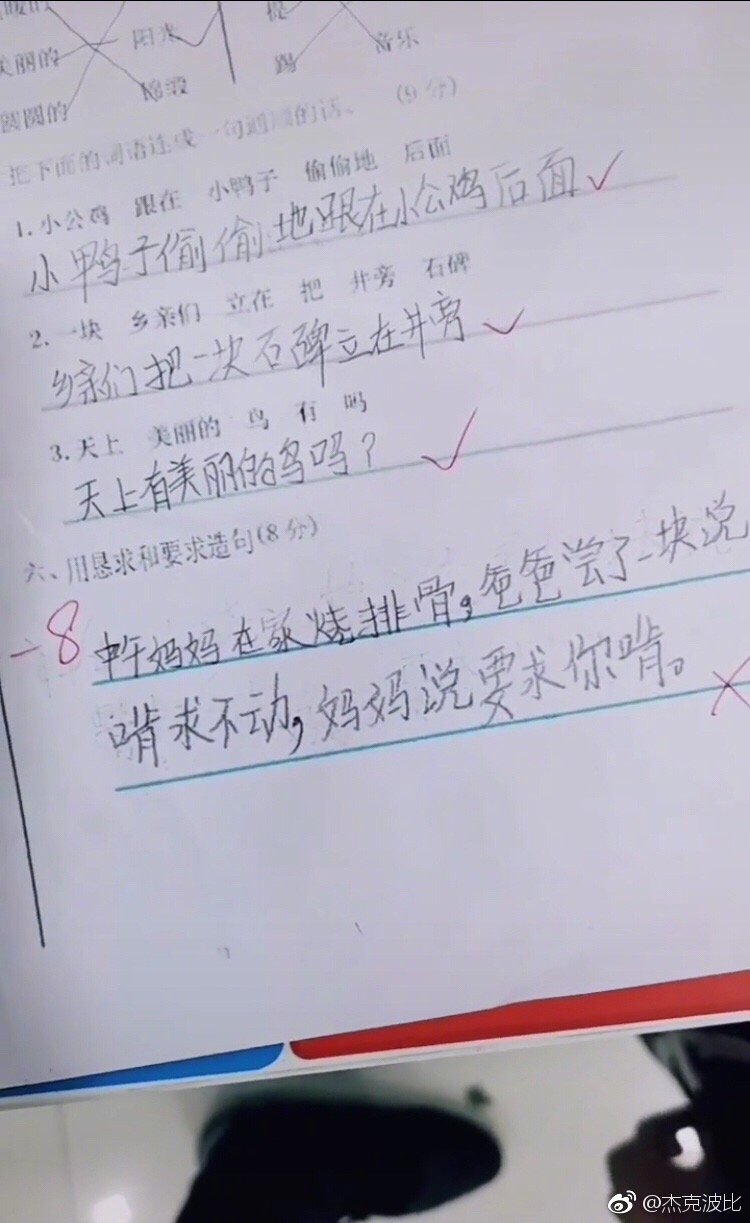 美丽的 阳光 踢 音乐
圆圆的
把下面的词语连成一句通顺的话。 (9分)
1.小公鸡 跟在 小鸭子 偷偷地 后面
小鸭子偷偷地跟在小公鸡后面
2.一块 乡亲们 立在 把 井旁 石碑
乡亲们把一块石碑立在井旁
3.天上 美丽的 鸟 有 吗
天上有美丽的鸟吗?
六、用恳求和要求造句(8分)
-8 中午妈妈在家烧排骨,爸爸尝了一块说
啃求不动,妈妈说要求你啃。
@杰克波比